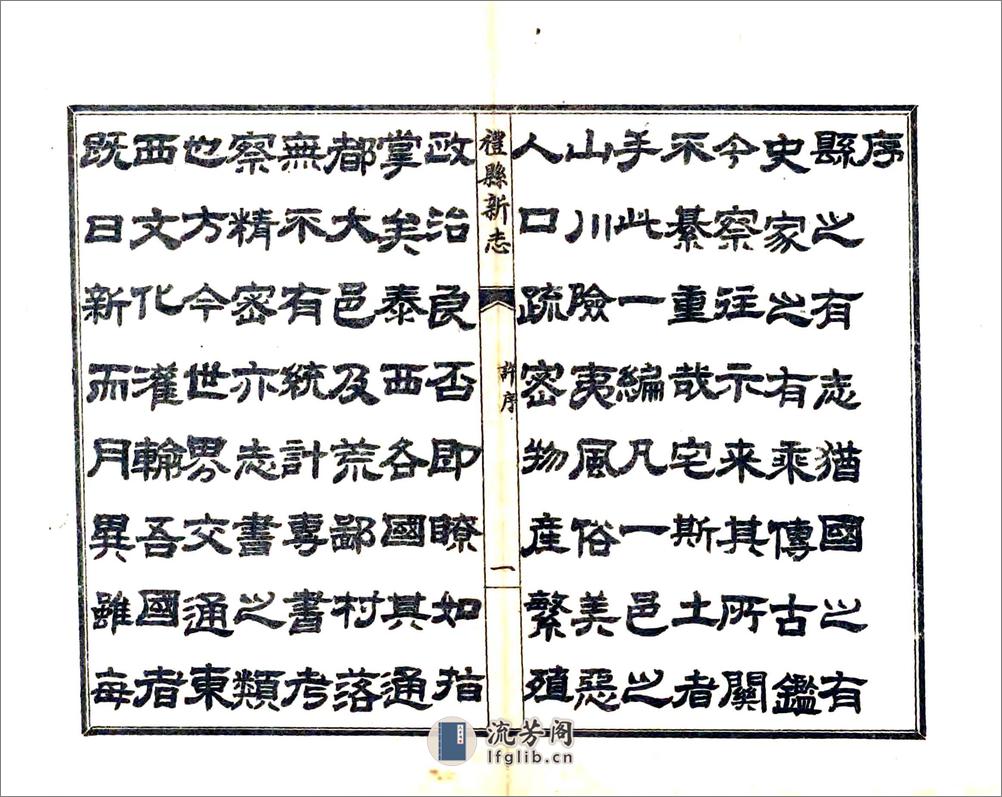 序
縣之有志猶國之有
史家之有乘傳古鑑
今察往示來其所關
不綦重哉宅斯土者
手此一編凡一邑之
山川險夷風俗美惡
人口疏密物産繁殖
禮縣新志
許序
一
政治良否即瞭如指
掌矣泰西各國其通
都大邑及荒鄙村落
無不有統計專書考
察精密亦志書之類
也方今世界交通東
西文化灌輸吾國者
既日新而月異雖每
流芳阁
lfglib.cn